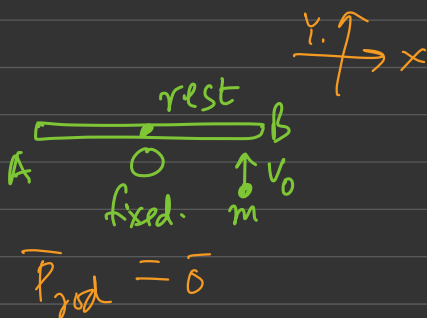 Y.
x
rest
A B
O v₀
fixed. m
P̅rod = 0̅